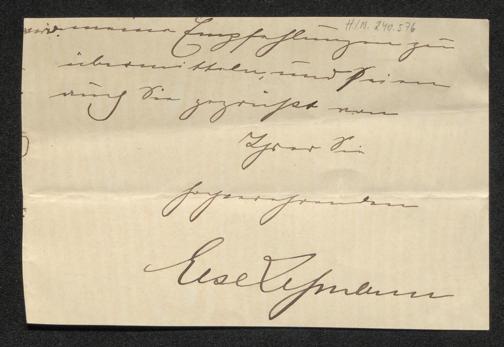 H.I.N. 240.576
meine Empfehlungen zu
übermitteln, und seien
auch Sie gegrüßt von
Ihrer Sie
hochverehrenden
Else Lehmann